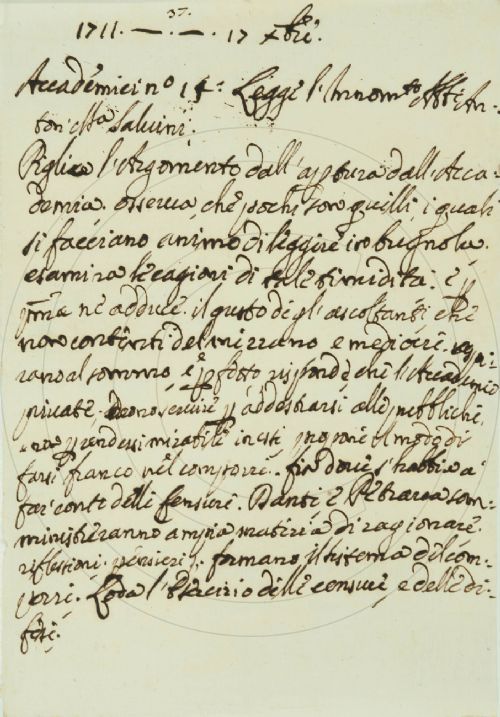 37.
1711. —.—. 17 Xbre.
Accademici nº 14: Leggè l'Innomto Abte An-
ton Mta Salvini.
Piglia l'Argomento dall'aptura dall'Acca-
demia. osserva, che pochi son quelli, i quali
si facciano animo di leggere in bugnola.
esamina le cagioni di tale timidità: e p
pma nè adduce. il gusto degl'ascoltanti che
non contenti del mezzano e mediocre. aspi-
rano al sommo, e p risponde che l'Accademie
private. deono servire p addestrarsi alle pubbliche,
non p rendersi mirabile in esse propone il modo di
farsi franco nel comporre. fin dove s'habbia a
far conto delle censure. Dante e Petrarca som-
ministreranno ampia materia di ragionare.
riflessioni. pensieri. formano il sistema del com-
porre. Loda l'esercizio delle censure, e delle di-
fese.